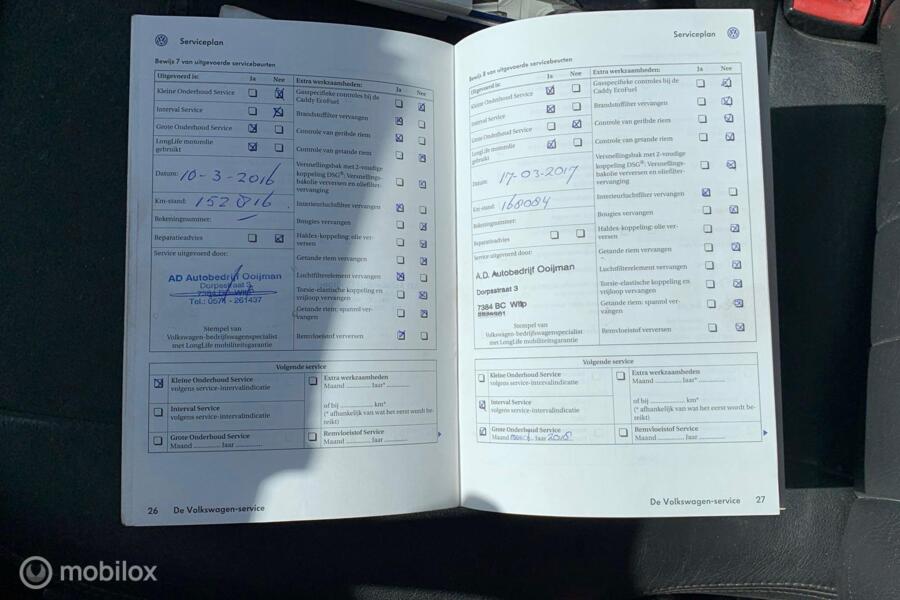 Serviceplan
Bewijs 7 van uitgevoerde servicebeurten
Uitgevoerd is: Ja Nee
Kleine Onderhoud Service
Interval Service
Grote Onderhoud Service
LongLife motorolie
gebruikt
Datum: 10-3-2016
Km-stand: 152816
Rekeningnummer:
Reparatieadvies
Service uitgevoerd door:
AD Autobedrijf Ooijman
Dorpsstraat 3
7384 BC Wilp
Tel.: 0571 - 261437
Stempel van
Volkswagen-bedrijfswagenspecialist
met LongLife mobiliteitsgarantie
Extra werkzaamheden: Ja Nee
Gasspecifieke controles bij de
Caddy EcoFuel
Brandstoffilter vervangen
Controle van geribde riem
Controle van getande riem
Versnellingsbak met 2-voudige
koppeling DSG®: Versnellings-
bakolie verversen en oliefilter-
vervanging
Interieurluchtfilter vervangen
Bougies vervangen
Haldex-koppeling: olie ver-
versen
Getande riem vervangen
Luchtfilterelement vervangen
Torsie-elastische koppeling en
vrijloop vervangen
Getande riem: spanrol ver-
vangen
Remvloeistof verversen
Volgende service
Kleine Onderhoud Service
volgens service-intervalindicatie
Interval Service
volgens service-intervalindicatie
Grote Onderhoud Service
Maand ............ Jaar ............
Extra werkzaamheden
Maand ............ Jaar* ............
of bij ............ km*
(* afhankelijk van wat het eerst wordt be-
reikt)
Remvloeistof Service
Maand ............ Jaar ............
26 De Volkswagen-service
Serviceplan
Bewijs 8 van uitgevoerde servicebeurten
Uitgevoerd is: Ja Nee
Kleine Onderhoud Service
Interval Service
Grote Onderhoud Service
LongLife motorolie
gebruikt
Datum: 17-03-2017
Km-stand: 168084
Rekeningnummer:
Reparatieadvies
Service uitgevoerd door:
A.D. Autobedrijf Ooijman
Dorpsstraat 3
7384 BC Wilp
Stempel van
Volkswagen-bedrijfswagenspecialist
met LongLife mobiliteitsgarantie
Extra werkzaamheden: Ja Nee
Gasspecifieke controles bij de
Caddy EcoFuel
Brandstoffilter vervangen
Controle van geribde riem
Controle van getande riem
Versnellingsbak met 2-voudige
koppeling DSG®: Versnellings-
bakolie verversen en oliefilter-
vervanging
Interieurluchtfilter vervangen
Bougies vervangen
Haldex-koppeling: olie ver-
versen
Getande riem vervangen
Luchtfilterelement vervangen
Torsie-elastische koppeling en
vrijloop vervangen
Getande riem: spanrol ver-
vangen
Remvloeistof verversen
Volgende service
Kleine Onderhoud Service
volgens service-intervalindicatie
Interval Service
volgens service-intervalindicatie
Grote Onderhoud Service
Maand maart Jaar 2018
Extra werkzaamheden
Maand ............ Jaar* ............
of bij ............ km*
(* afhankelijk van wat het eerst wordt be-
reikt)
Remvloeistof Service
Maand ............ Jaar ............
De Volkswagen-service 27
mobilox